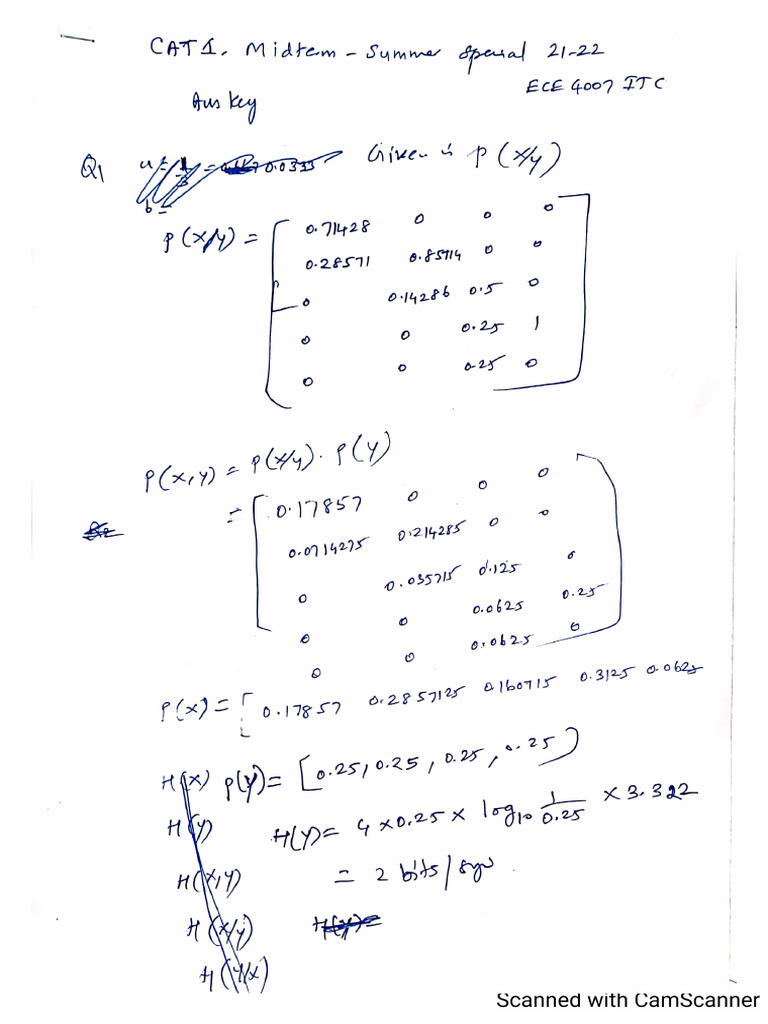 CAT1. Midterm - Summer Special 21-22
ECE 4007 ITC
Ans key
Q1 Given is P(X/Y)
P(X/Y) = [ 0.71428 0 0 0
0.28571 0.85714 0 0
0 0.14286 0.5 0
0 0 0.25 1
0 0 0.25 0 ]
P(X,Y) = P(X/Y) . P(Y)
= [ 0.17857 0 0 0
0.0714275 0.214285 0 0
0 0.035715 0.125 0
0 0 0.0625 0.25
0 0 0.0625 0 ]
P(X) = [ 0.17857 0.2857125 0.160715 0.3125 0.0625
H(X) P(Y) = [0.25, 0.25, 0.25, 0.25)
H(Y) H(Y) = 4 x 0.25 x log10 1/0.25 x 3.322
H(X,Y) = 2 bits/sys
H(X/Y) H(Y) =
H(Y/X)
Scanned with CamScanner